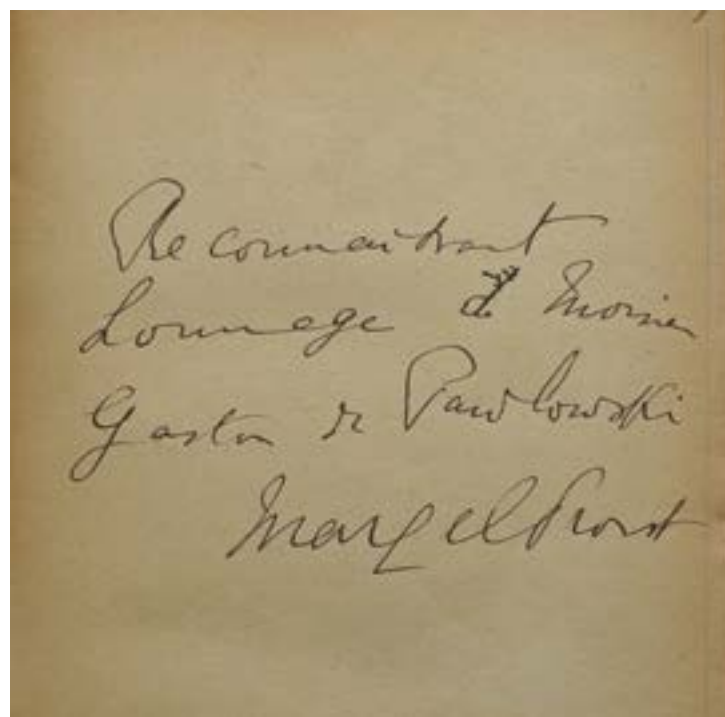 Reconnaissant
hommage à Monsieur
Gaston de Pawlowski
Marcel Proust